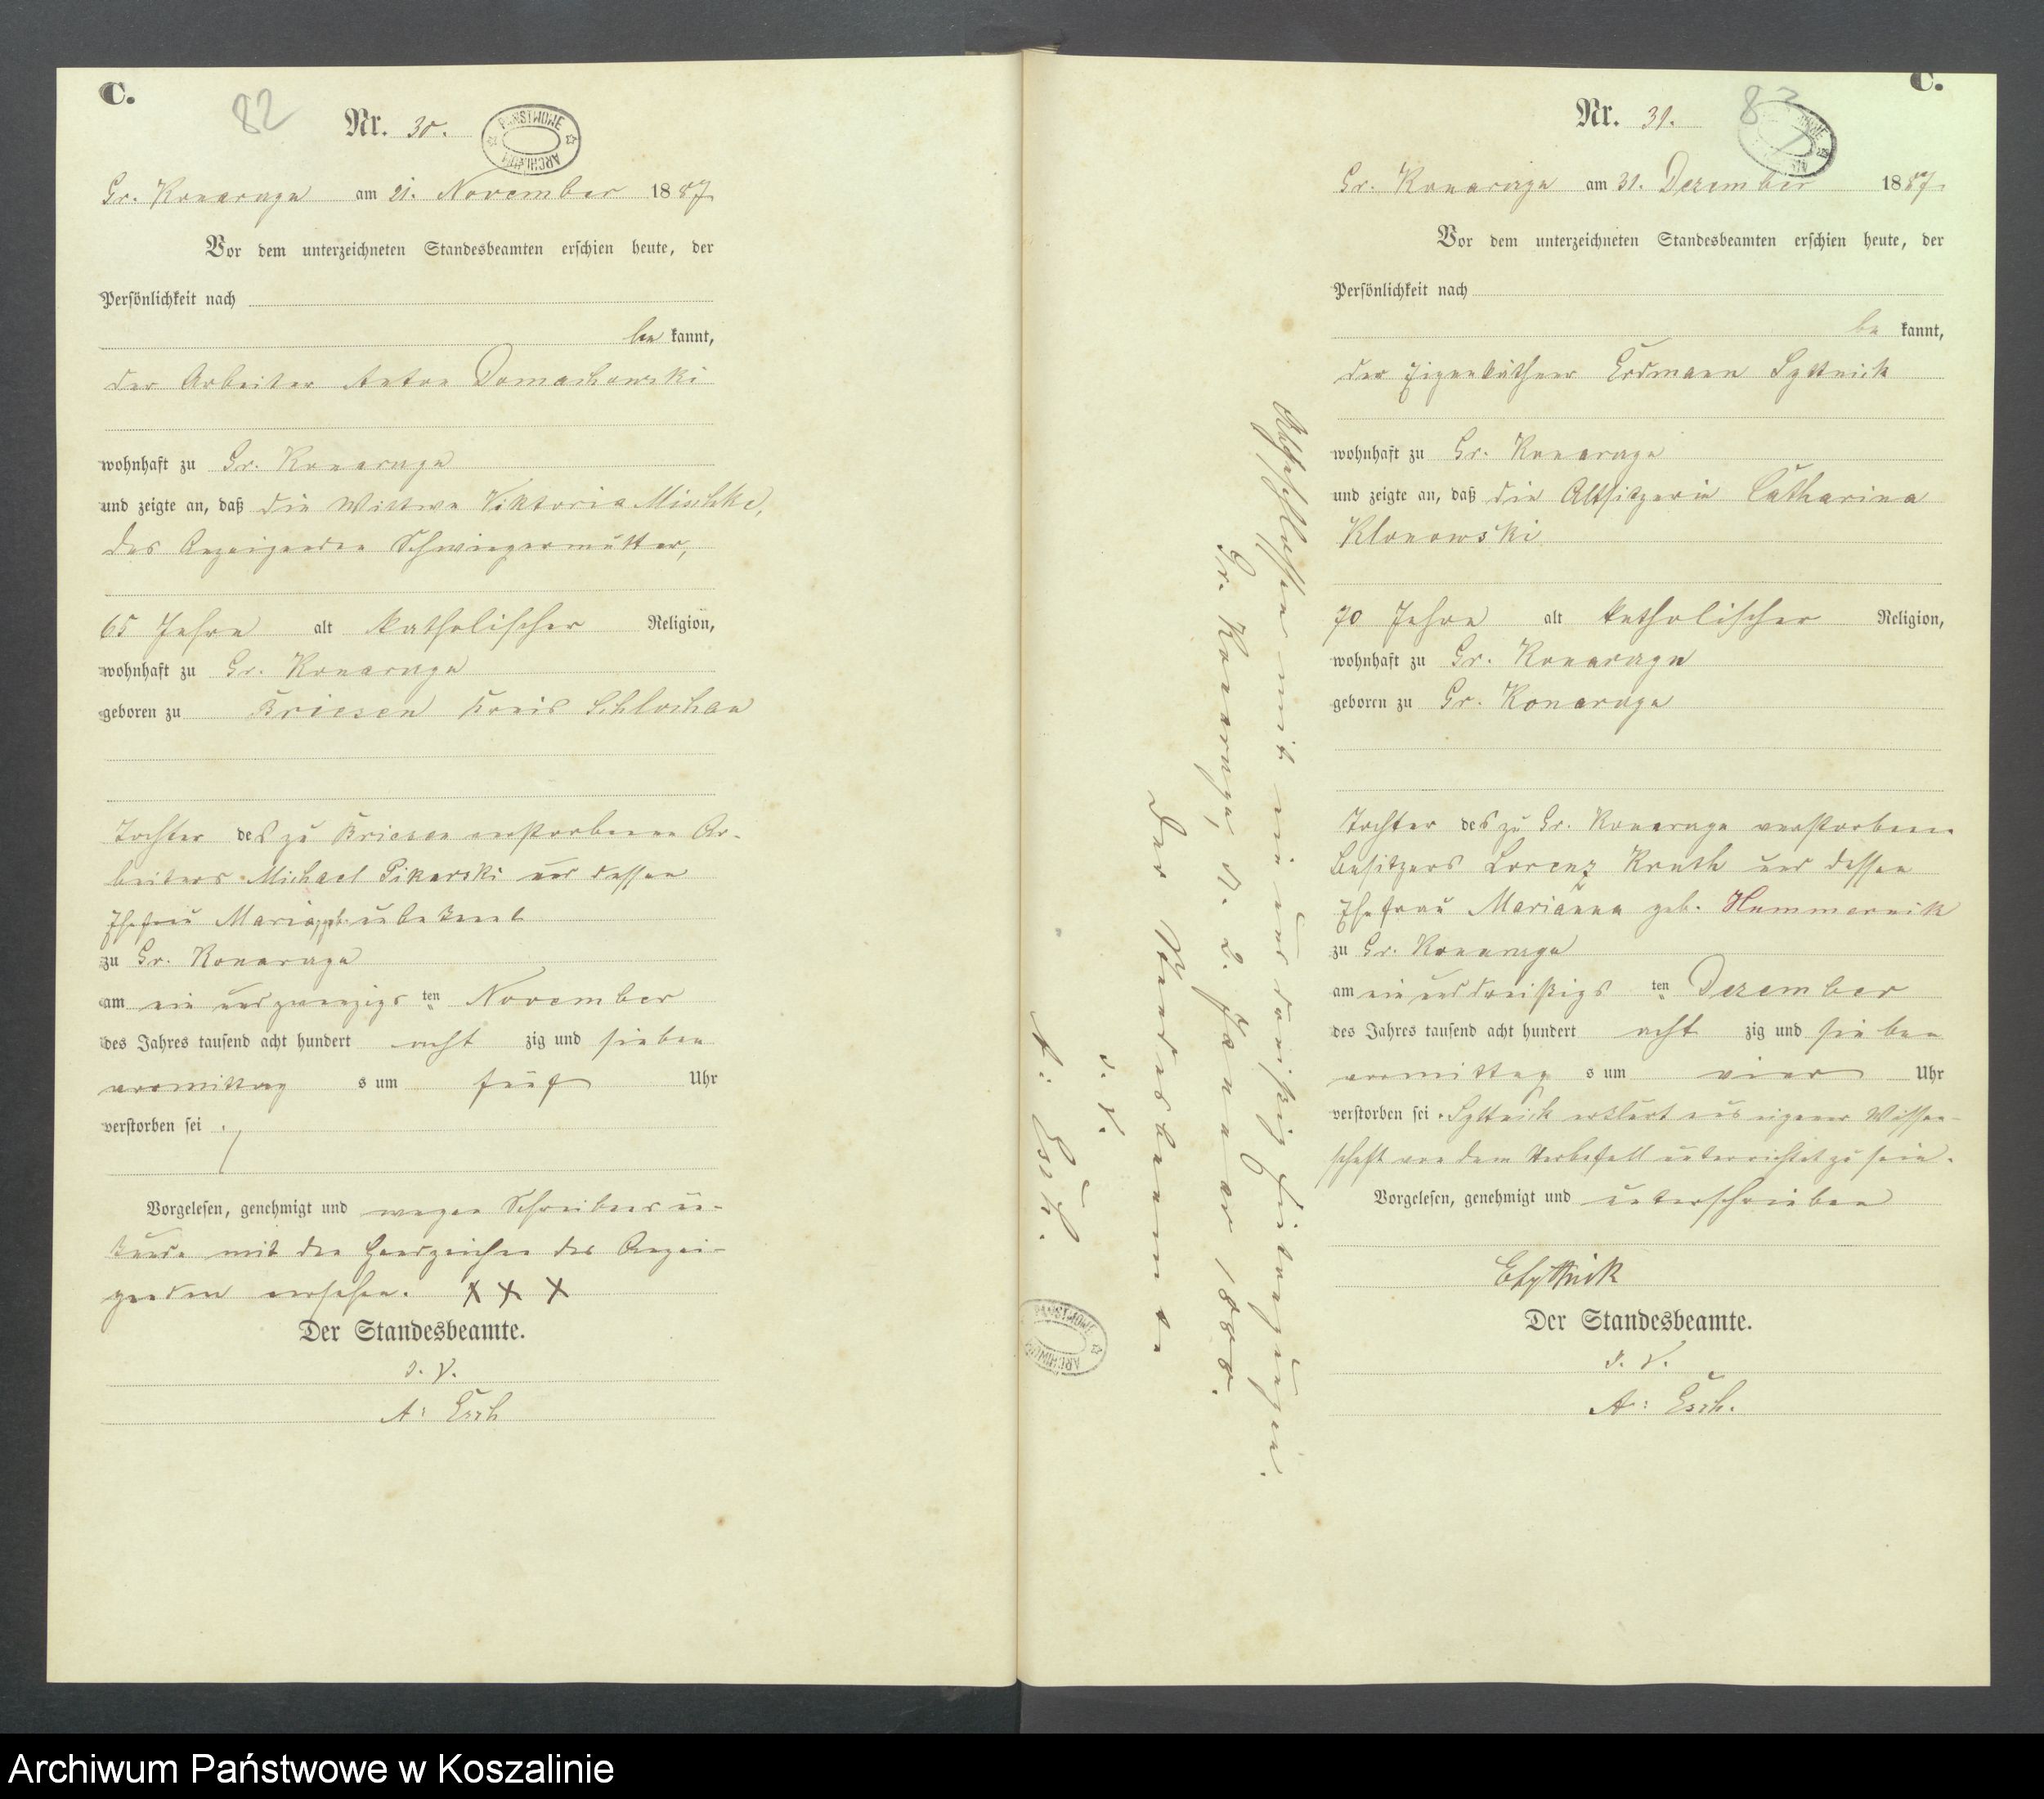 C.
82
Nr. 30.
PAŃSTWOWE ARCHIWUM
Gr. Konarczyn am 21. November 1887
Vor dem unterzeichneten Standesbeamten erschien heute, der
Persönlichkeit nach
be kannt,
der Arbeiter Anton Domachowski
wohnhaft zu Gr. Konarczyn
und zeigte an, daß die Wittwe Viktoria Mischke,
des Anzeigenden Schwiegermutter,
65 Jahre alt katholischer Religion,
wohnhaft zu Gr. Konarczyn
geboren zu Briesen Kreis Schlochau
Tochter des zu Briesen verstorbenen Ar-
beiters Michael Pikarski und dessen
Ehefrau Maria geb. unbekannt
zu Gr. Konarczyn
am ein und zwanzigs ten November
des Jahres tausend acht hundert acht zig und sieben
vormittag s um fünf Uhr
verstorben sei.
Vorgelesen, genehmigt und wegen Schreibensun-
kunde mit den Handzeichen des Anzei-
genden versehen. X X X
Der Standesbeamte.
I. V.
A: Esch
C.
83
Nr. 31.
Gr. Konarczyn am 31. Dezember 1887.
Vor dem unterzeichneten Standesbeamten erschien heute, der
Persönlichkeit nach
be kannt,
der Eigenkäthner Erdmann Syttnick
wohnhaft zu Gr. Konarczyn
und zeigte an, daß die Altsitzerin Catharina
Klonowski
70 Jahre alt katholischer Religion,
wohnhaft zu Gr. Konarczyn
geboren zu Gr. Konarczyn
Tochter des zu Gr. Konarczyn verstorbenen
Besitzers Lorenz Knuth und dessen
Ehefrau Marianna geb. Hammernik
zu Gr. Konarczyn
am ein und dreißigs ten Dezember
des Jahres tausend acht hundert acht zig und sieben
vormittag s um vier Uhr
verstorben sei. Syttnick erklärt aus eigener Wissen-
schaft von dem Sterbefall unterrichtet zu sein.
Vorgelesen, genehmigt und unterschrieben
ESyttnik
Der Standesbeamte.
I. V.
A: Esch.
Abgeschlossen mit ein und dreißig Eintragungen.
Gr. Konarczyn, d. 2. Januar 1888.
Der Standesbeamte
I. V.
A: Esch.
PAŃSTWOWE ARCHIWUM
Archiwum Państwowe w Koszalinie